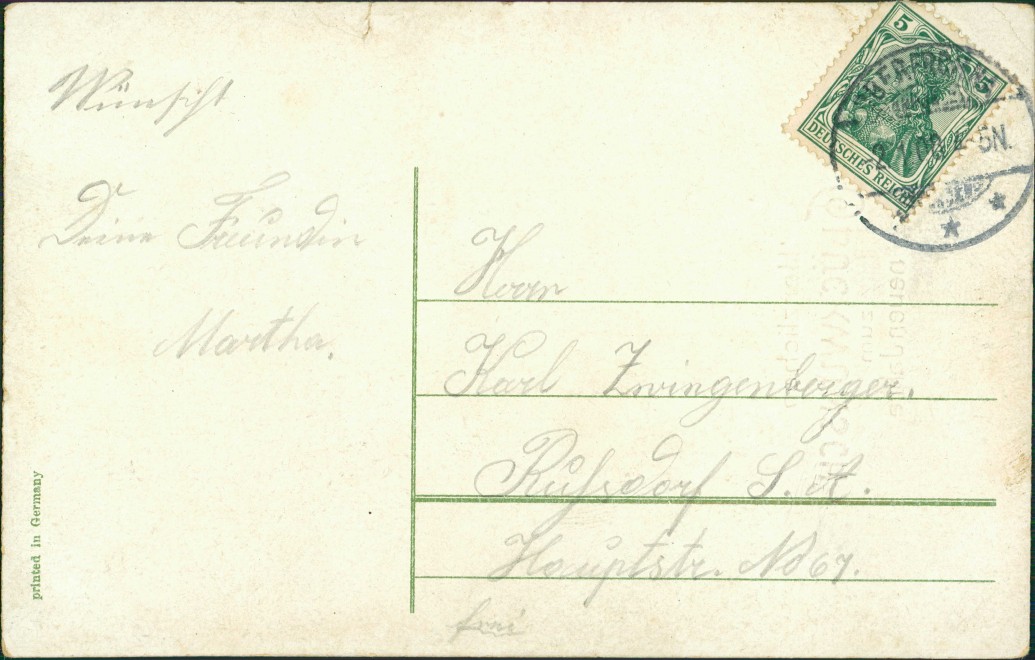 Wünscht
Deine Freundin
Martha.
printed in Germany
5
5
DEUTSCHES REICH
5N.
Herrn
Karl Zwingenberger.
Ruhsdorf S. A.
Hauptstr. No 67.
frei